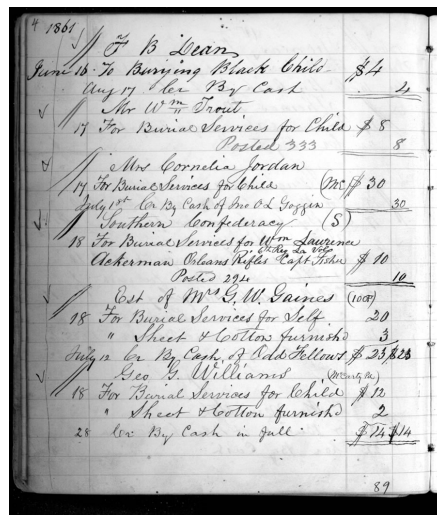 4 1861
F B Dean
June 16 To Burying Black Child $4
Aug 17 Cr By Cash 4
Mr Wm Trout
17 For Burial Services for Child $ 8
Posted 333 8
Mrs Cornelia Jordan
17 For Burial Services for Child (Mc) $ 30
July 1st Cr By Cash of Jno O L Goggin 30
Southern Confederacy (S)
18 For Burial Services for Wm Laurence
6th Reg La Vols
Ackerman Orleans Rifles Capt Fisher $ 10
Posted 294 10
Est of Mrs G. W. Gaines
18 For Burial Services for Self 20
" Sheet & Cotton furnishd 3
July 12 Cr By Cash of Odd Fellows $ 23 $23
Geo G. Williams
18 For Burial Services for Child $ 12
" Sheet & Cotton furnishd 2
28 Cr By Cash in full $14 $14
89